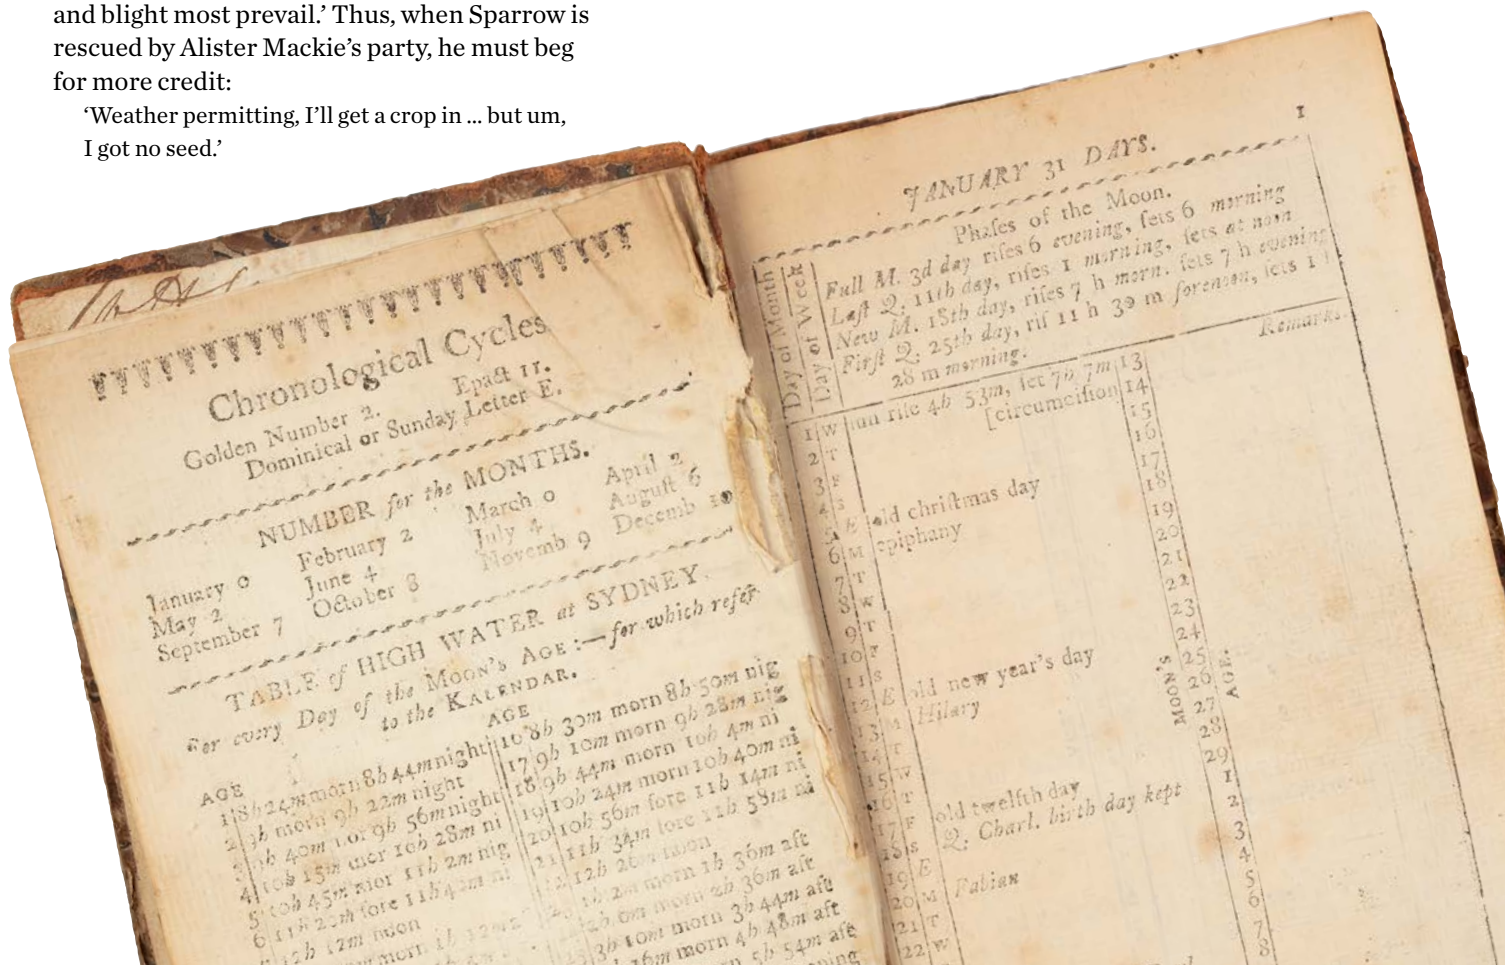 and blight most prevail.’ Thus, when Sparrow is
rescued by Alister Mackie’s party, he must beg
for more credit:
‘Weather permitting, I’ll get a crop in ... but um,
I got no seed.’
Chronological Cycles
Golden Number 2. Epact 11.
Dominical or Sunday Letter E.
NUMBER for the MONTHS.
January 0 February 2 March 0 April 2
May 2 June 4 July 4 August 6
September 7 October 8 Novemb 9 Decemb 10
TABLE of HIGH WATER at SYDNEY.
For every Day of the MOON’S AGE:—for which refer
to the KALENDAR.
AGE
1 8h 24m morn 8h 44m night
2 9h morn 9h 22m night
3 9h 40m mor 9h 56m night
4 10h 15m mor 10h 28m ni
5 10h 45m mor 11h 2m nig
6 11h 20m fore 11h 42m ni
12h 12m noon
AGE
16 8h 30m morn 8h 50m nig
17 9h 10m morn 9h 28m nig
18 9h 44m morn 10h 4m ni
19 10h 24m morn 10h 40m ni
20 10h 56m fore 11h 14m ni
21 11h 34m fore 11h 58m ni
12h 26m noon
morn 1h 36m aft
morn 2h 36m aft
3h 10m morn 3h 44m aft
16m morn 4h 48m aft
5h 54m aft
1
JANUARY 31 DAYS.
Day of Month
Day of Week
Phaſes of the Moon.
Full M. 3d day riſes 6 evening, ſets 6 morning
Laſt Q. 11th day, riſes 1 morning, ſets at noon
New M. 18th day, riſes 7 h morn. ſets 7 h evening
Firſt Q. 25th day, riſ 11 h 39 m forenoon, ſets 1
28 m morning.
Remarks.
1 W ſun riſe 4h 53m, ſet 7h 7m 13
2 T [circumciſion 14
3 F 15
4 S 16
5 E old chriſtmas day 17
6 M epiphany 18
7 T 19
8 W 20
9 T 21
10 F 22
11 S 23
12 E old new year’s day 24
13 M Hilary 25
14 T 26
15 W 27
16 T 28
17 F old twelfth day 29
18 S Q. Charl. birth day kept 1
19 E 2
20 M Fabian 3
21 T 4
22 W 5
6
7
8
MOON’S
AGE.